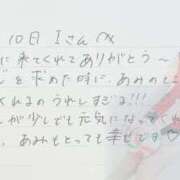 10日 Iさん
に来てくれてありがとう〜
を求めた時に、あみのと
くれるのうれしすぎる!!!
が少しでも元気になってくれ
、あみもとっても幸せです